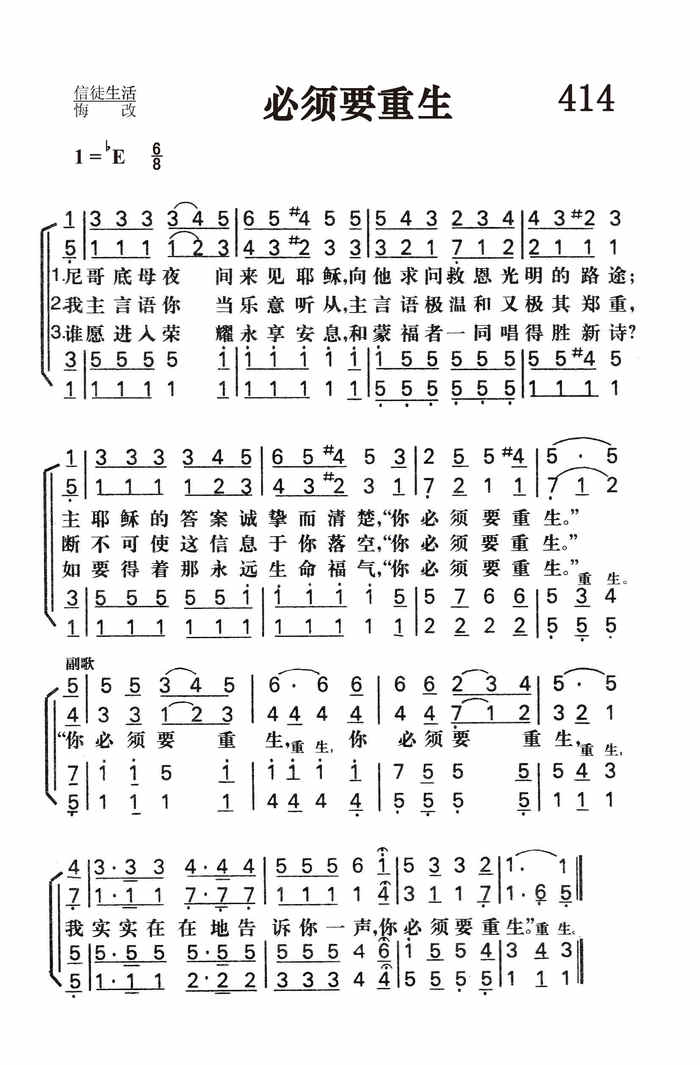 信徒生活
悔 改
必须要重生
414
1=♭E 6/8
1 | 3 3 3 3 4 5 | 6 5 #4 5 5 | 5 4 3 2 3 4 | 4 3 #2 3
5 | 1 1 1 1 2 3 | 4 3 #2 3 3 | 3 2 1 7 1 2 | 2 1 1 1
1.尼哥底母夜 间来见耶稣,向他求问救恩光明的路途;
2.我主言语你 当乐意听从,主言语极温和又极其郑重,
3.谁愿进入荣 耀永享安息,和蒙福者一同唱得胜新诗?
3 | 5 5 5 5 5 | i i i i i | i 5 5 5 5 5 | 5 5 #4 5
1 | 1 1 1 1 1 | 1 1 1 1 1 | 5 5 5 5 5 5 | 1 1 1 1
1 | 3 3 3 3 4 5 | 6 5 #4 5 3 | 2 5 5 #4 | 5 · 5
5 | 1 1 1 1 2 3 | 4 3 #2 3 1 | 7 2 1 1 | 7 1 2
主耶稣的答案诚挚而清楚,“你必须要重生。”
断不可使这信息于你落空,“你必须要重生。”
如要得着那永远生命福气,“你必须要重生。”重 生。
3 | 5 5 5 5 5 i | i i i i 5 | 5 7 6 6 | 5 3 4
1 | 1 1 1 1 1 1 | 1 1 1 1 1 | 2 2 2 2 | 5 5 5
副歌
5 | 5 5 3 4 5 | 6 · 6 6 | 6 6 2 3 4 | 5 · 5
4 | 3 3 1 2 3 | 4 4 4 4 | 4 4 7 1 2 | 3 2 1
“你 必 须 要 重 生,重生, 你 必 须 要 重 生,重生,
7 | i i 5 i | i i i i | 7 5 5 5 | 5 4 3
5 | 1 1 1 1 | 4 4 4 4 | 5 5 5 5 | 1 1 1
4 | 3·3 3 4·4 4 | 5 5 5 6 i | 5 3 3 2 | 1. 1 ‖
7 | 1·1 1 7·7 7 | 1 1 1 1 4 | 3 1 1 7 | 1·6 5 ‖
我 实实在在地告 诉你一声,你必须要重生。”重生。
5 | 5·5 5 5·5 5 | 5 5 5 4 6 | i 5 5 4 | 3 4 3 ‖
5 | 1·1 1 2·2 2 | 3 3 3 4 4 | 5 5 5 5 | 1 1 1 ‖